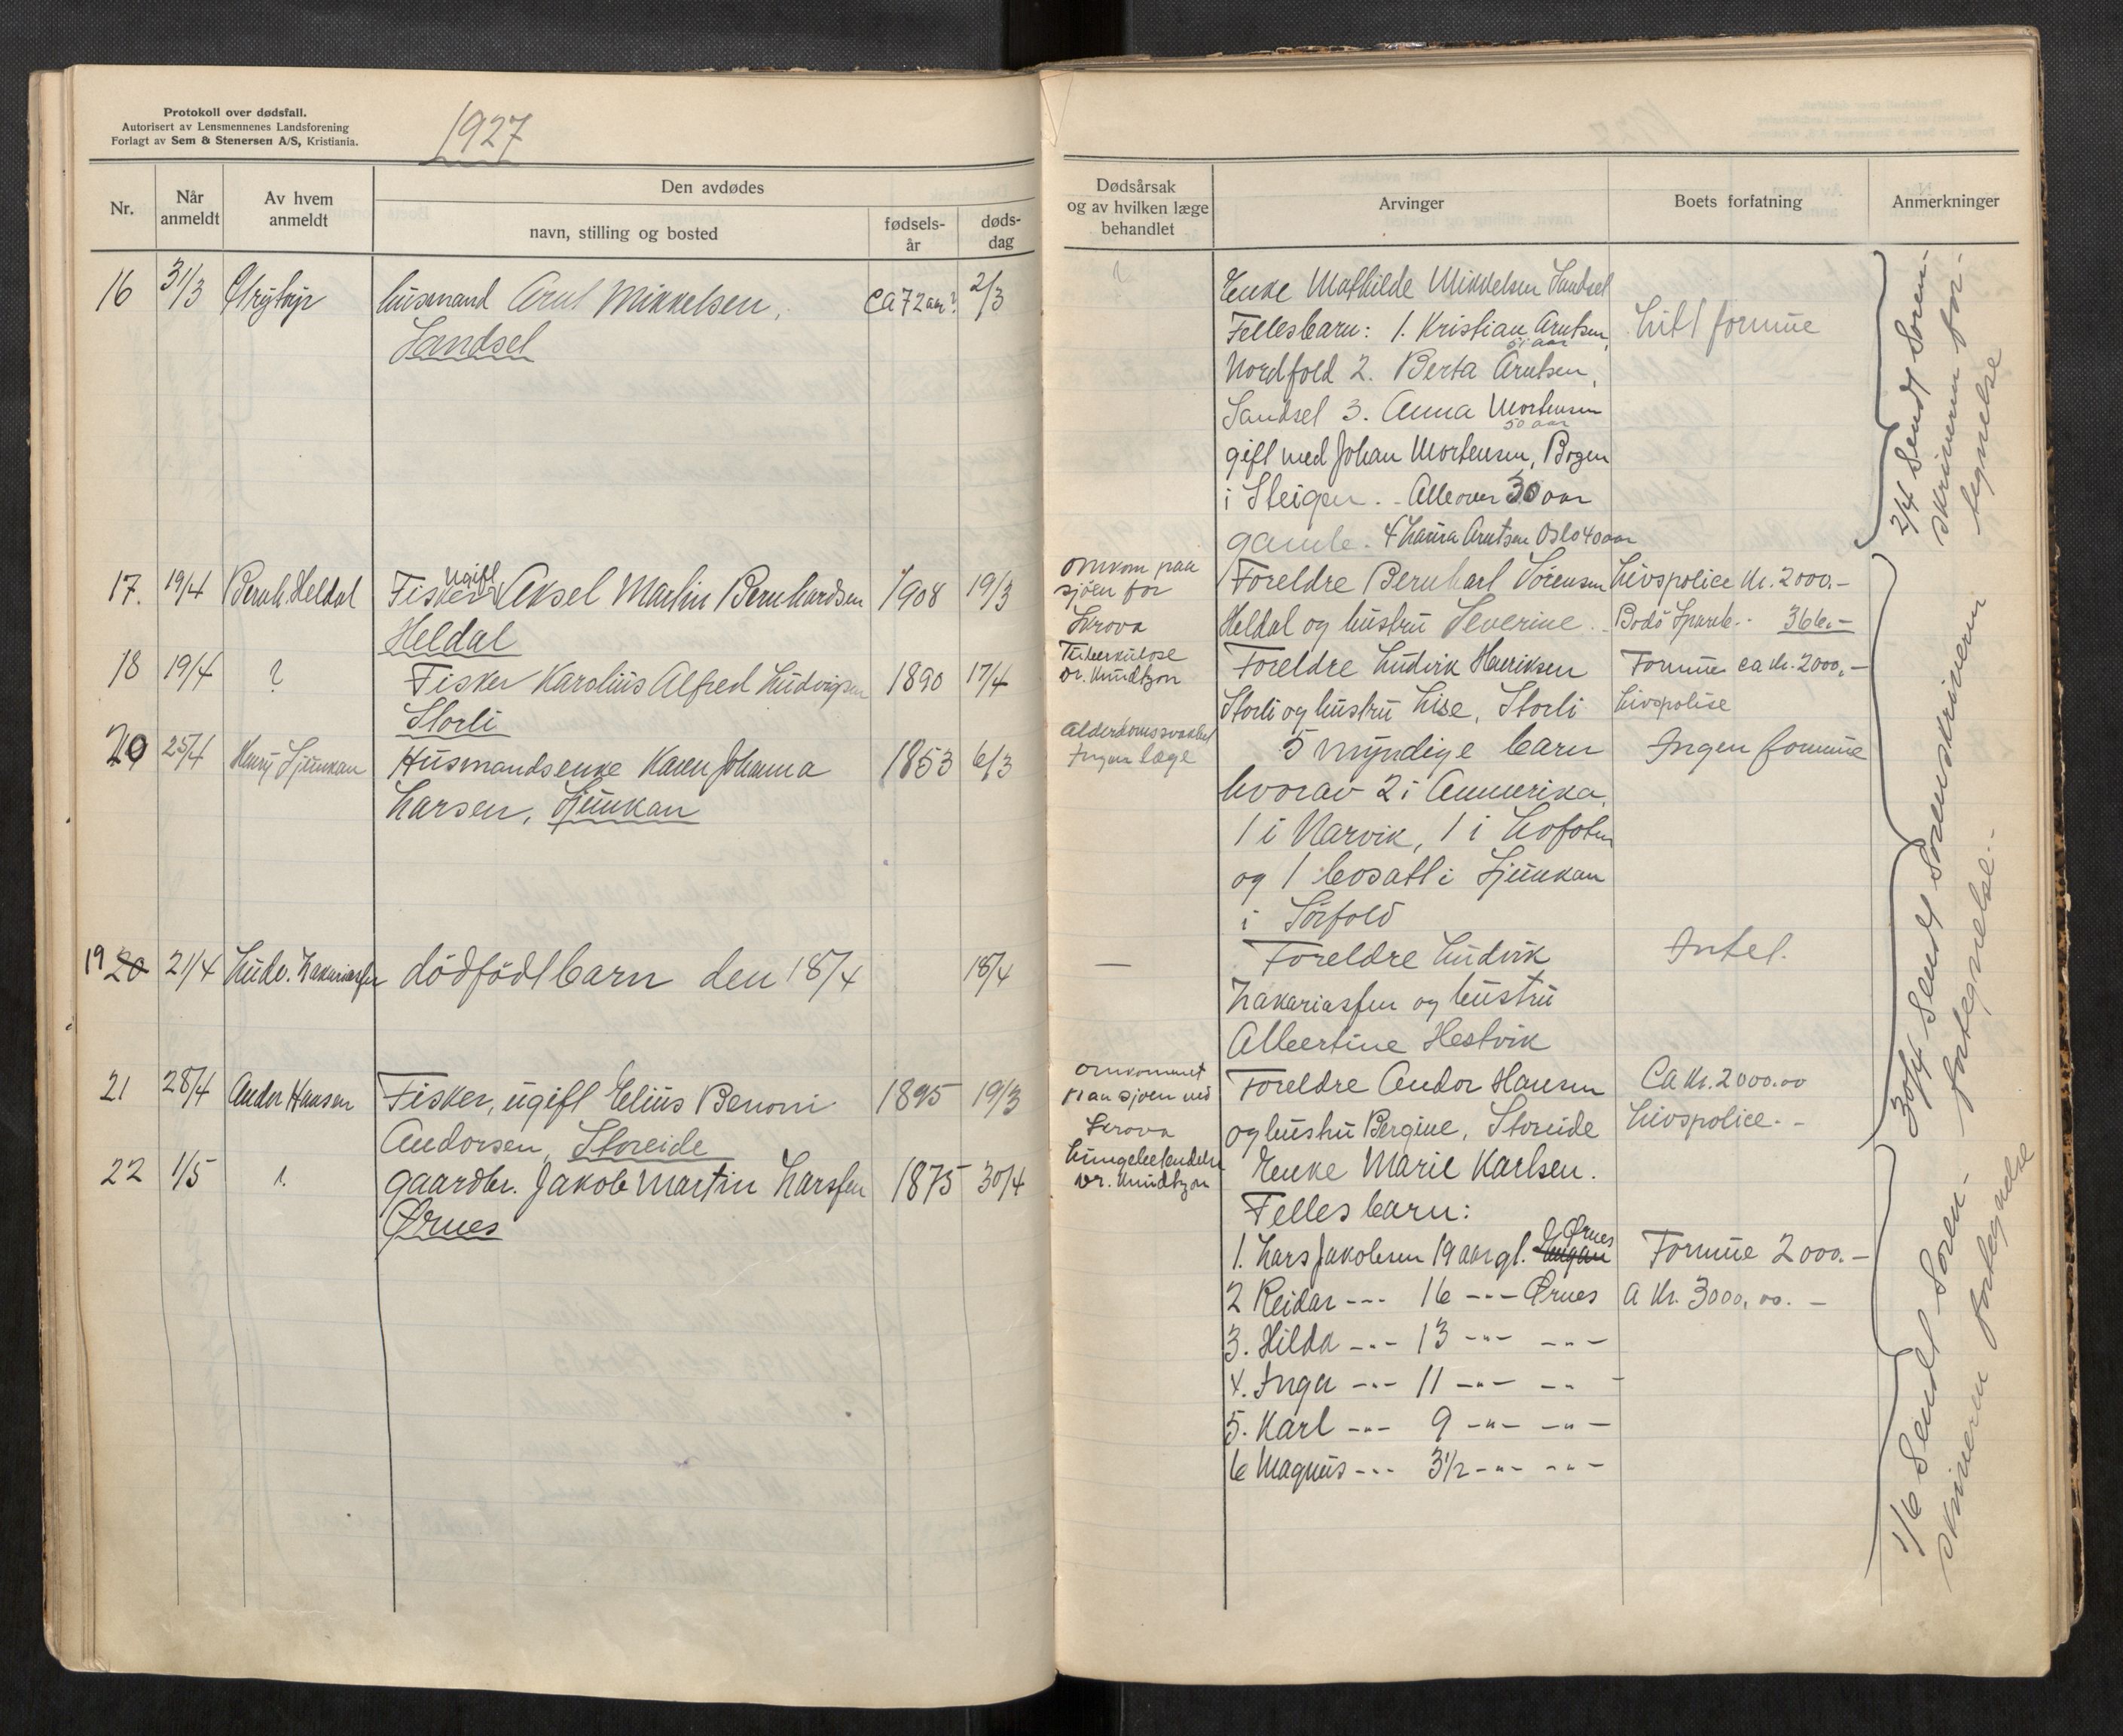 Protokoll over dødsfall.
Autorisert av Lensmennenes Landsforening
Forlagt av Sem & Stenersen A/S, Kristiania.
1927
Nr.
Når anmeldt
Av hvem anmeldt
Den avdødes
navn, stilling og bosted
fødsels-år
døds-dag
Dødsårsak
og av hvilken læge
behandlet
Arvinger
Boets forfatning
Anmerkninger
16 31/3 husmand Arnt Mikkelsen, ca 72 aar? 2/3
Sandsel
?
Enke Mathilde Mikkelsen Sandsel
Fellesbarn: 1. Kristian Arntsen,
51 aar
Nordfold 2. Berta Arntsen,
Sandsel 3. Anna Mortensen
50 aar
gift med Johan Mortensen, Bogen
i Steigen. - Alle over 30 aar
gamle. 4 Laura Arntsen Oslo 40 aar
Litt formue
17. 19/4 Bernh. Heldal Fisker ugift Aksel Martin Bernhardsen 1908 19/3
Heldal
Omkom paa
sjøen for
Skrova
Foreldre Bernhart Sörensen
Heldal og hustru Severine.
Livspolice Kr. 2000.-
Bodö Spareb. - 366.-
18 19/4 ? Fisker Karolius Alfred Ludvigsen 1890 17/4
Storli
Tuberkulose
Dr. Knudtzon
Foreldre Ludvik Henriksen
Storli og hustru Lise, Storli
Formue ca kr. 2000,-
Livspolise
20 25/4 Henry Sjunkan Husmandsenke Karen Johanna 1853 6/3
Larsen, Sjunkan
Alderdomssvakhet
Ingen læge
5 myndige barn
hvorav 2 i Ammerika,
1 i Narvik, 1 i Lofoten
og 1 bosatt i Sjunkan
i Sörfold
Ingen formue
19 20 21/4 Ludv. Zakariassen dödfödt barn den 18/4 18/4
—
Foreldre Ludvik
Zakariassen og hustru
Albertine Hestvik
Intet.
21 28/4 Andor Hansen Fisker, ugift Elius Benoni 1895 19/3
Andorsen, Storeide
Omkommet
paa sjøen ved
Skrova
Foreldre Andor Hansen
og hustru Bergine, Storeide
Ca Kr. 2000.00
Livspolice. -
22 1/5 gaardbr. Jakob Martin Larssen 1875 30/4
Ørnes
Lungebetendelse
Dr. Knudtzon
Enke Marie Karlsen.
Felles barn:
1. Lars Jakobsen 19 aar gl. Ørnes
2 Reidar --- 16 --- Ørnes
3. Hilda -"- 13 -"- -"-
4. Inga -"- 11 -"- -"-
5. Karl -"- 9 -"- -"-
6 Magnus -"- 3½ -"- -"-
Formue 2000.-
a Kr. 3000,00. -
2/4 Sendt Soren-
skriveren for-
tegnelse
30/4 Sendt Sorenskriveren
fortegnelse. -
1/6 Sendt Soren-
skriveren fortegnelse